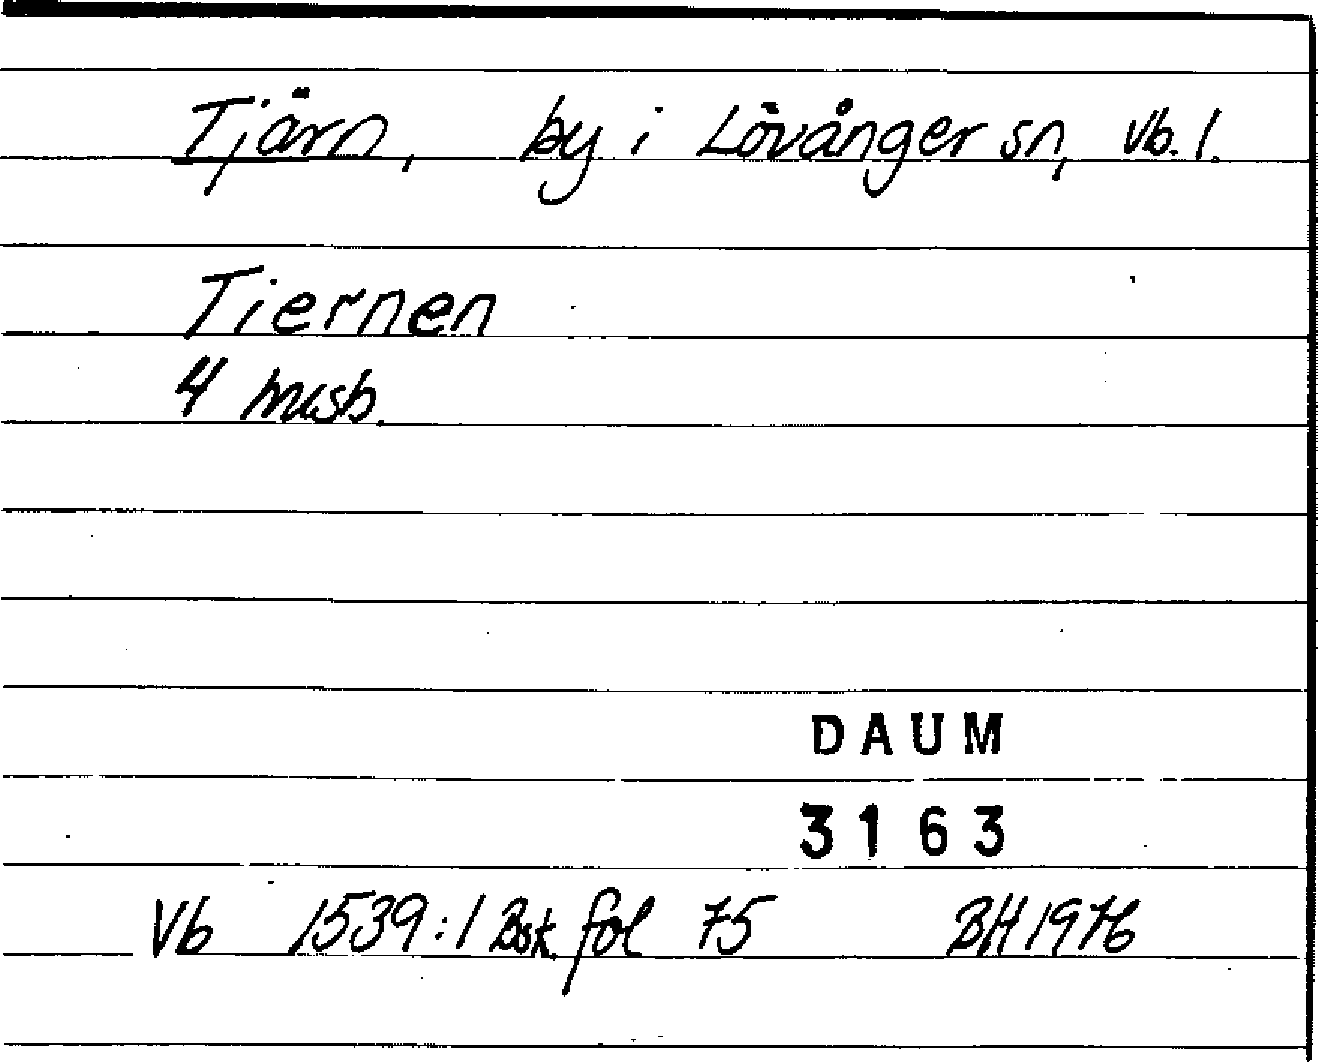 Tjärn, by i Lövånger sn, Vb. l.
Tiernen
4 husb.
DAUM
3163
Vb 1539:1 Bsk. fol 75 BH 1976